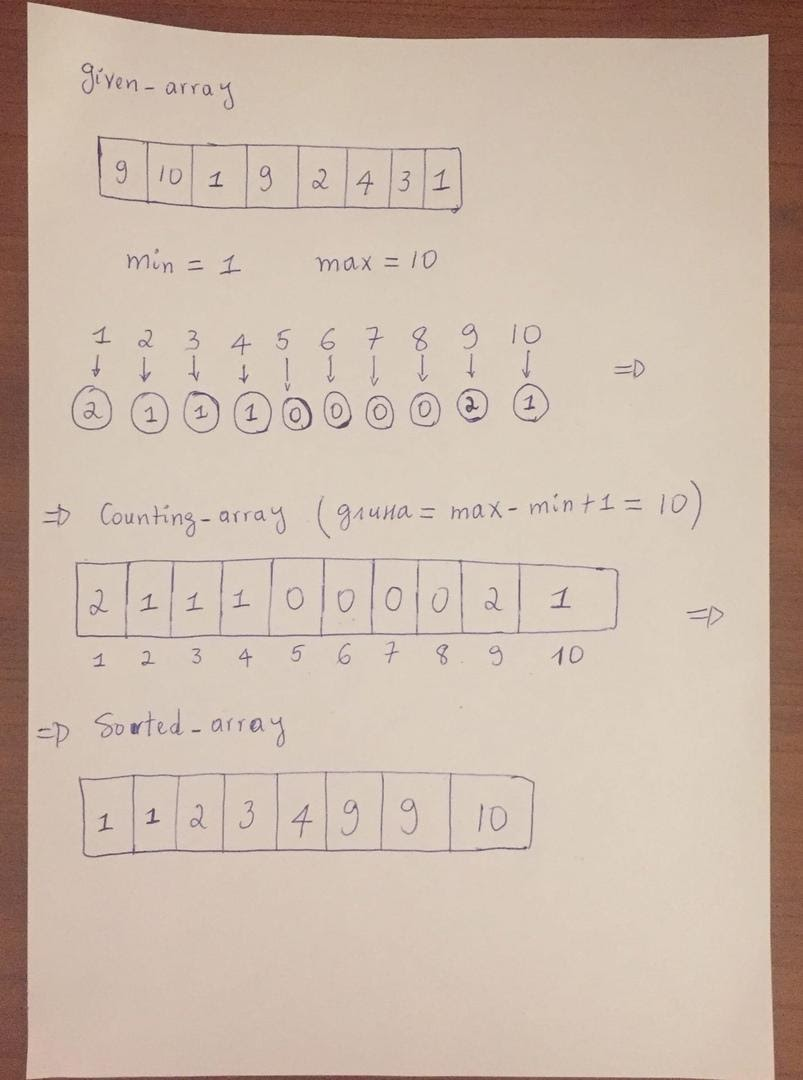 given-array
9 10 1 9 2 4 3 1
min = 1 max = 10
1 2 3 4 5 6 7 8 9 10
↓ ↓ ↓ ↓ ↓ ↓ ↓ ↓ ↓ ↓ ⇒
2 1 1 1 0 0 0 0 2 1
⇒ Counting-array (длина = max - min + 1 = 10)
2 1 1 1 0 0 0 0 2 1 ⇒
1 2 3 4 5 6 7 8 9 10
⇒ Sorted-array
1 1 2 3 4 9 9 10